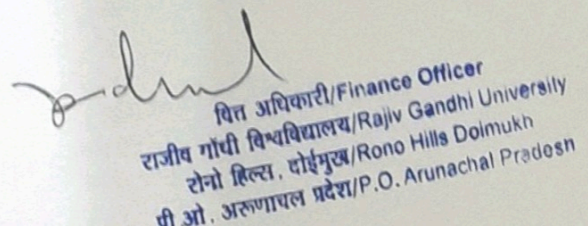 वित्त अधिकारी/Finance Officer
राजीव गाँधी विश्वविद्यालय/Rajiv Gandhi University
रोनो हिल्स, दोईमुख/Rono Hills Doimukh
पी ओ. अरूणाचल प्रदेश/P.O. Arunachal Pradesh